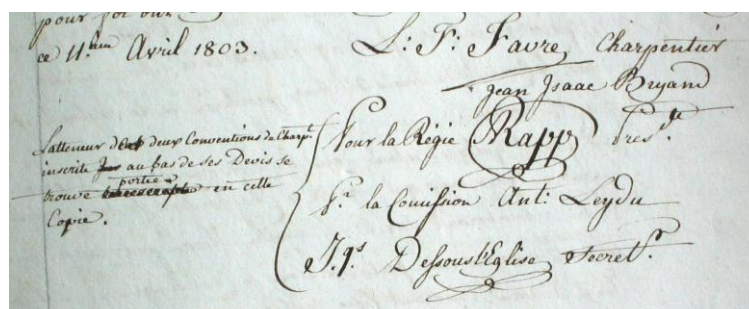 pour foi
ce 11.em Avril 1803.
L: F: Favre, Charpentier
Jean Isaac Bryand
Pour la Régie Rapp pres.t
P.r la Comission Ant: Leydu
J.qs Dessousl'Eglise Secret.r
La teneur d deux Conventions du Charp.r
inscrite au bas de ses Devis se
trouve portée en cette
Copie.